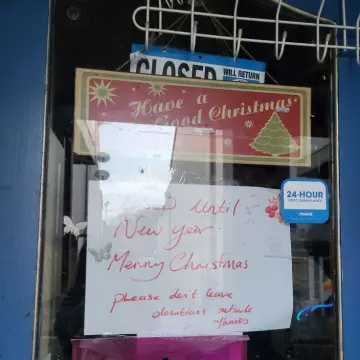 CLOSED
WILL RETURN
Have a
Good Christmas
24-HOUR
VIDEO SURVEILLANCE
until
New year.
Merry Christmas
please don't leave
donations outside
thanks